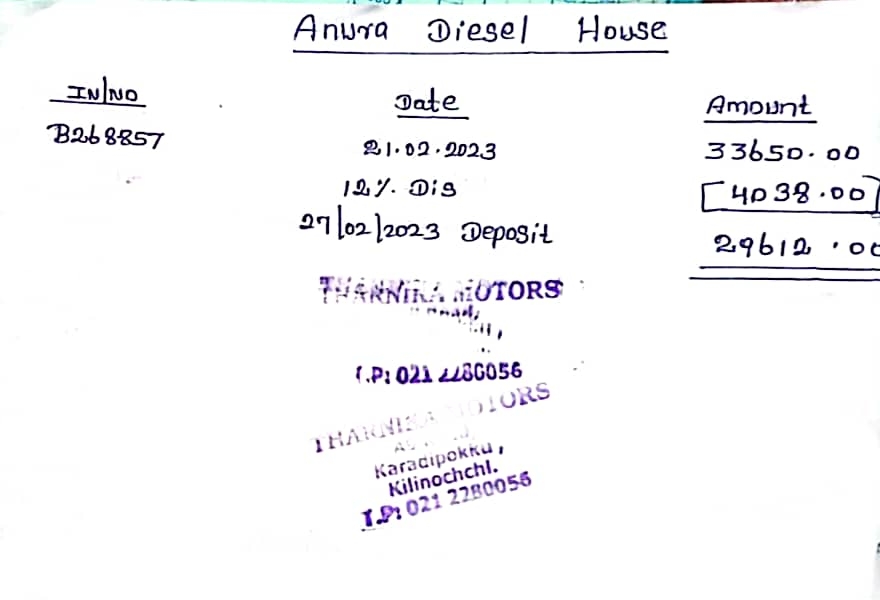 Anura Diesel House
IN/NO Date Amount
B268857 21.02.2023 33650.00
12% Dis [4038.00]
27/02/2023 Deposit 29612.00
THARNIKA MOTORS
T.P: 021 2280056
THARNIKA MOTORS
Karadipokku,
Kilinochchi.
T.P: 021 2280056